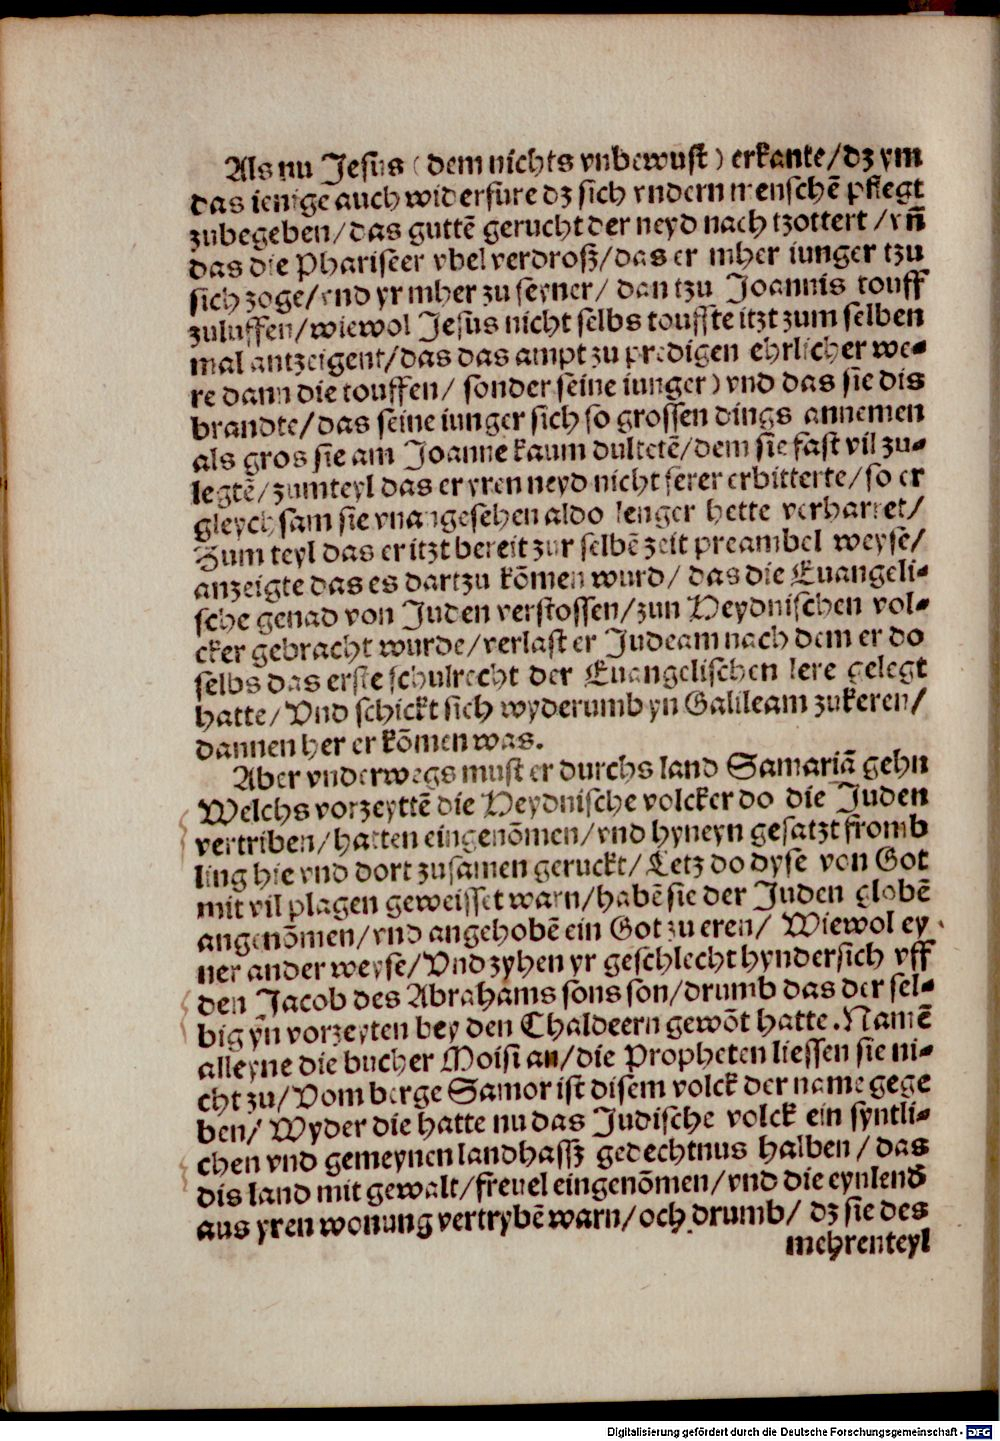 Als nu Jesus (dem nichts vnbewust) erkante/dz ym
das ienige auch widerfure dz sich vndern menschē pflegt
zubegeben/das guttē gerucht der neyd nach tzottert/vn̄
das die Phariseer vbel verdroß/das er mher iunger tzu
sich zoge/vnd yr mher zu seyner/ dan tzu Joannis touff
zuluffen/wiewol Jesus nicht selbs touffte itzt zum selben
mal antzeigent/das das ampt zu predigen ehrlicher we-
re dann die touffen/ sonder seine iunger) vnd das sie dis
brandte/das seine iunger sich so grossen dings annemen
als gros sie am Joanne kaum dultetē/dem sie fast vil zu-
legtē/zumteyl das er yren neyd nicht ferer erbitterte/so er
gleych sam sie vnangesehen aldo lenger hette verharret/
Zum teyl das er itzt bereit zur selbē zeit preambel weyse/
anzeigte das es dartzu kōmen wurd/ das die Euangeli-
sche genad von Juden verstossen/zun Heydnischen vol-
cker gebracht wurde/verlast er Judeam nach dem er do
selbs das erste schulrecht der Euangelischen lere gelegt
hatte/Vnd schickt sich wyderumb yn Galileam zukeren/
dannen her er kōmen was.
Aber vnderwegs must er durchs land Samariā gehn
Welchs vorzeyttē die Heydnische volcker do die Juden
vertriben/hatten eingenōmen/vnd hyneyn gesatzt fromb
ling hie vnd dort zusamen geruckt/Letz do dyse von Got
mit vil plagen geweisset warn/habē sie der Juden globē
angenōmen/vnd angehobē ein Got zu eren/ Wiewol ey
ner ander weyse/Vnd zyhen yr geschlecht hyndersich vff
den Jacob des Abrahams sons son/drumb das der sel-
big yn vorzeyten bey den Chaldeern gewōt hatte.Namē
alleyne die bucher Moisi an/die Propheten liessen sie ni-
cht zu/Vom berge Samor ist disem volck der name gege
ben/ Wyder die hatte nu das Judische volck ein syntli-
chen vnd gemeynen landhassz gedechtnus halben/ das
dis land mit gewalt/freuel eingenōmen/vnd die eynlend
aus yren wonung vertrybē warn/och drumb/ dz sie des
mehrenteyl
Digitalisierung gefördert durch die Deutsche Forschungsgemeinschaft - DFG